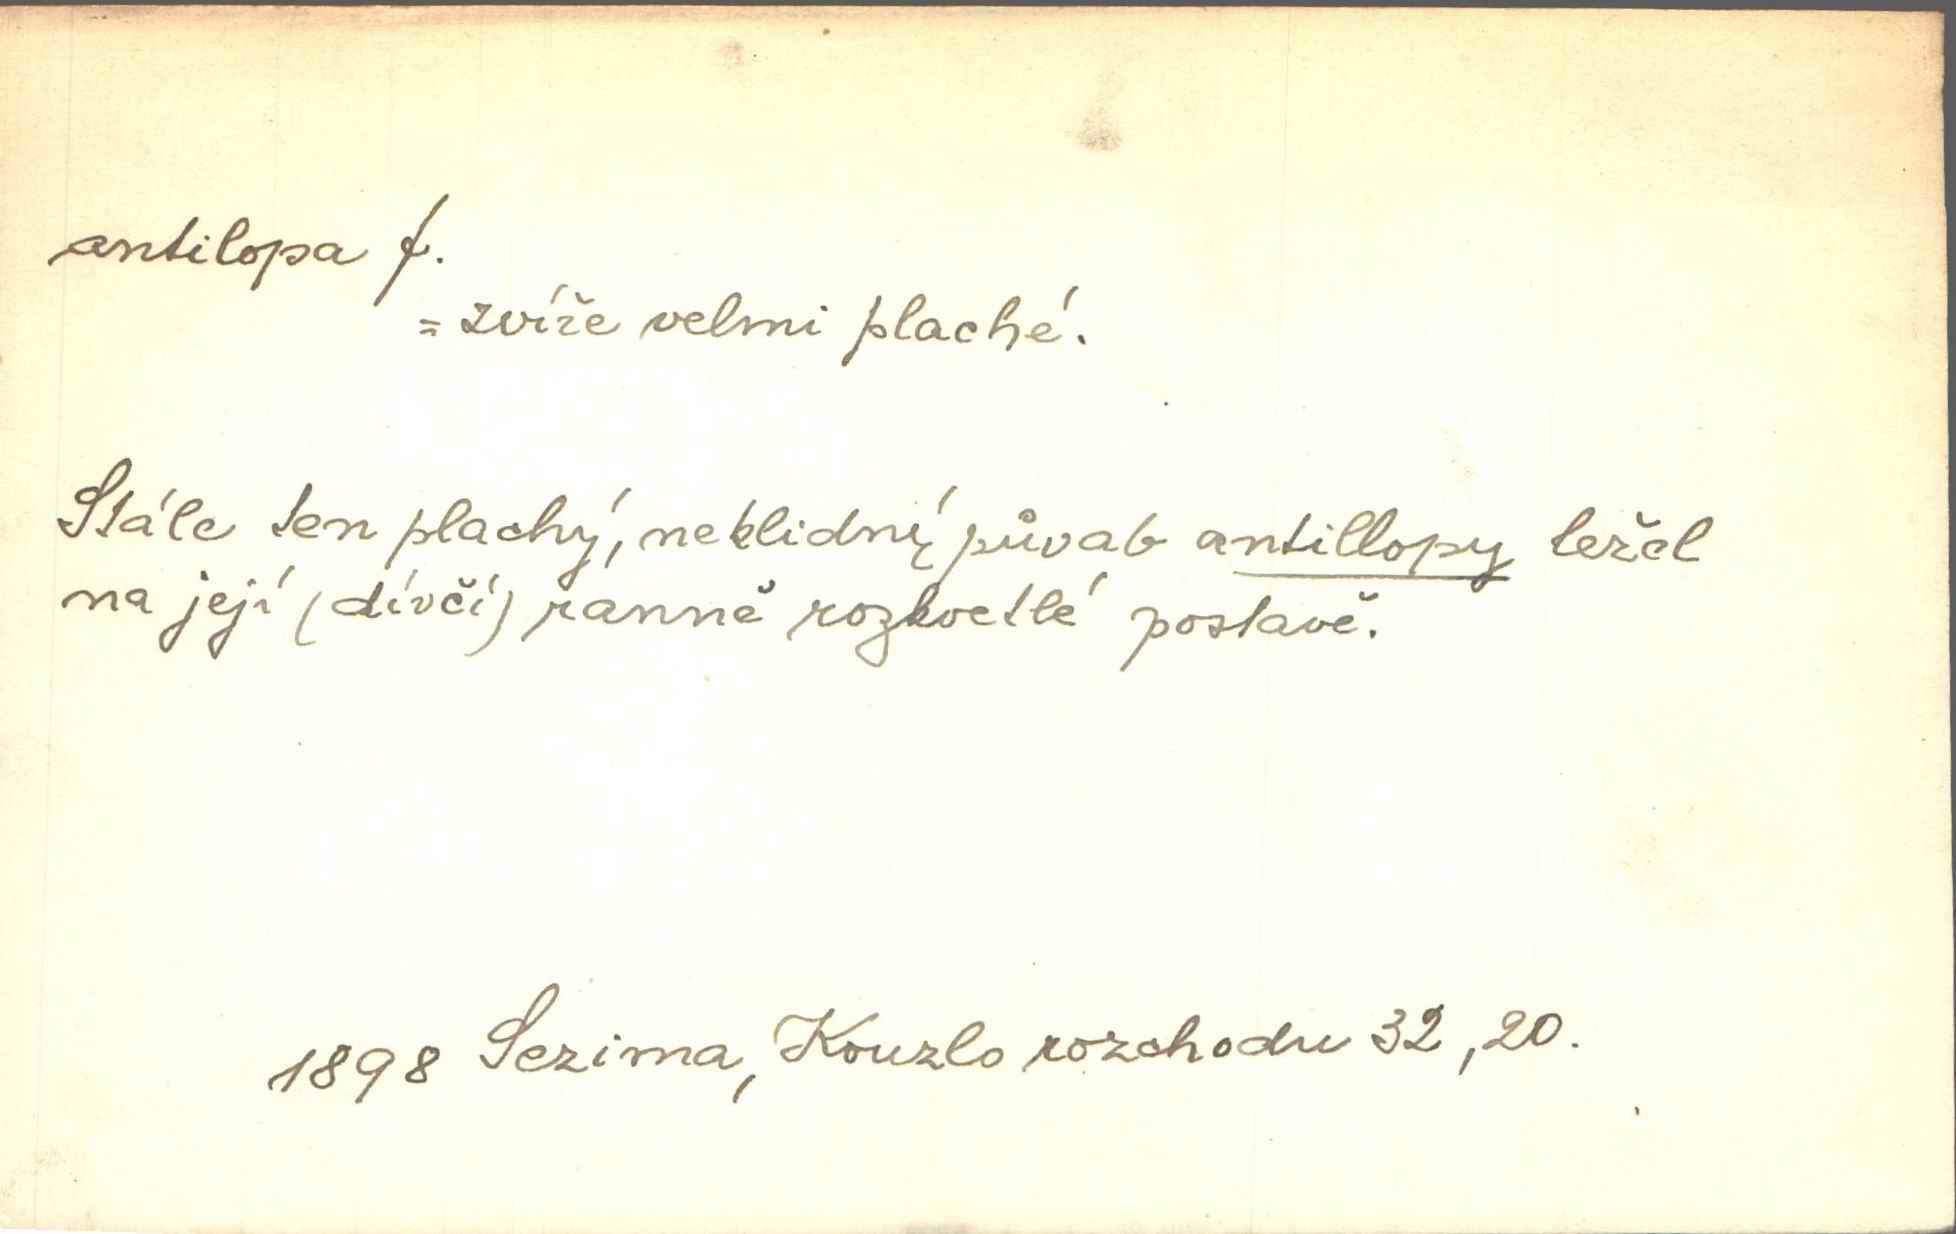 antilopa f.
= zvíře velmi plaché.
Stále ten plachý, neklidný půvab antillopy ležel
na její (dívčí) ranně rozkvetlé postavě.
1898 Sezima, Kouzlo rozchodu 32, 20.